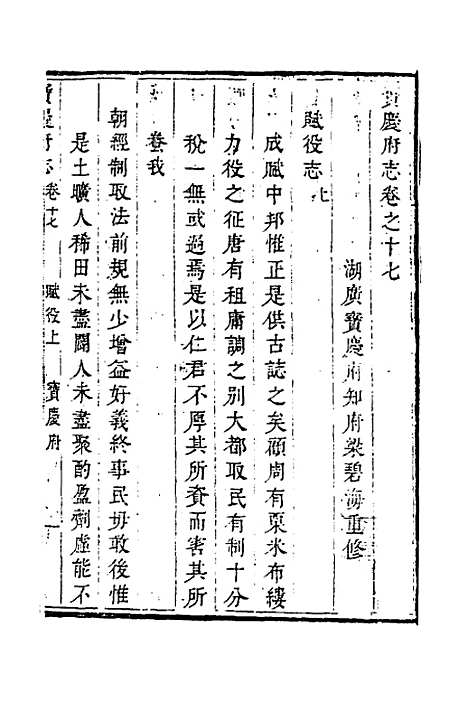 慶府志卷之十七
湖廣寶慶府知府梁碧海重修
賦役志
成賦中邦惟正是供古誌之矣顧周有粟米布縷
力役之征唐有租庸調之别大都取民有制十分
稅一無或過焉是以仁君不厚其所賚而害其所
養我
朝經制取法前規無少增益好義終事民毋敢後惟
是土曠人稀田未盡闢人未盡聚酌盈劑虛能不
寶慶府志 卷十七 賦役上 寶慶府 一